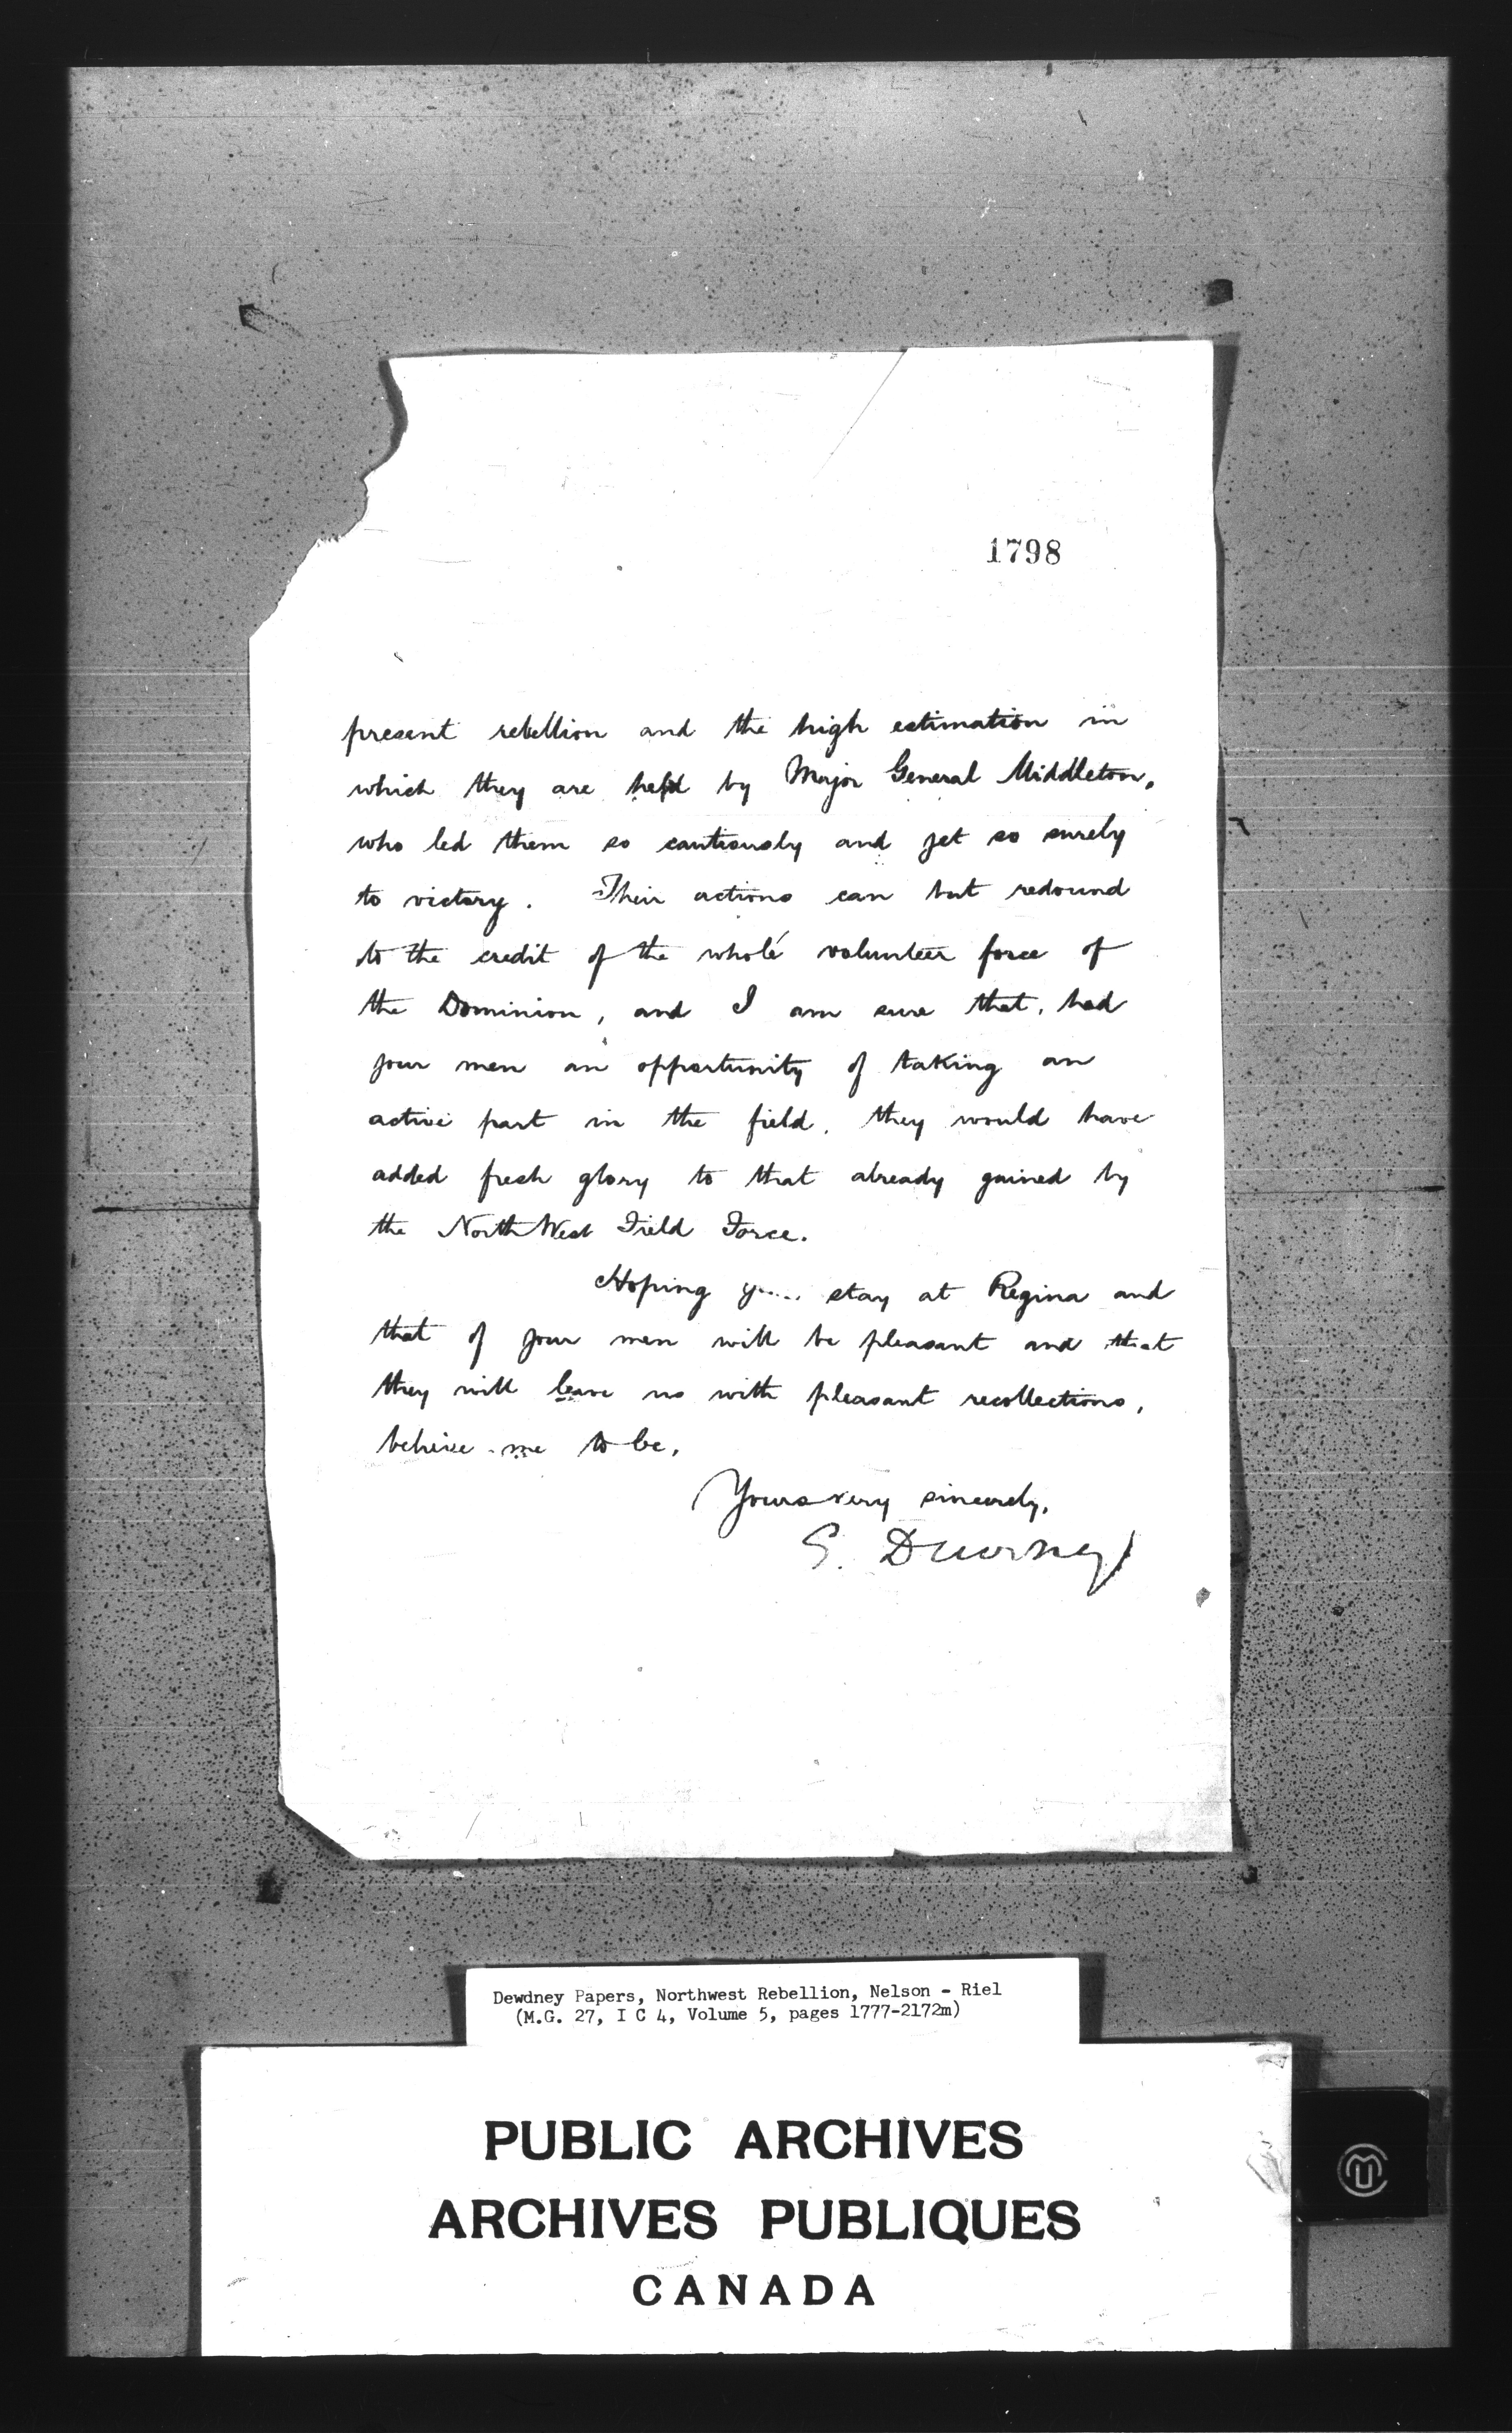 1798
present rebellion and the high estimation in
which they are held by Major General Middleton,
who led them so cautiously and yet so surely
to victory. Their actions can but redound
to the credit of the whole volunteer force of
the Dominion, and I am sure that, had
your men an opportunity of taking an
active part in the field, they would have
added fresh glory to that already gained by
the North West Field Force.
Hoping stay at Regina and
that of your men will be pleasant and that
they will leave us with pleasant recollections,
believe me to be,
Yours very sincerely,
E. Dewdney
Dewdney Papers, Northwest Rebellion, Nelson - Riel
(M.G. 27, I C 4, Volume 5, pages 1777-2172m)
PUBLIC ARCHIVES
ARCHIVES PUBLIQUES
CANADA